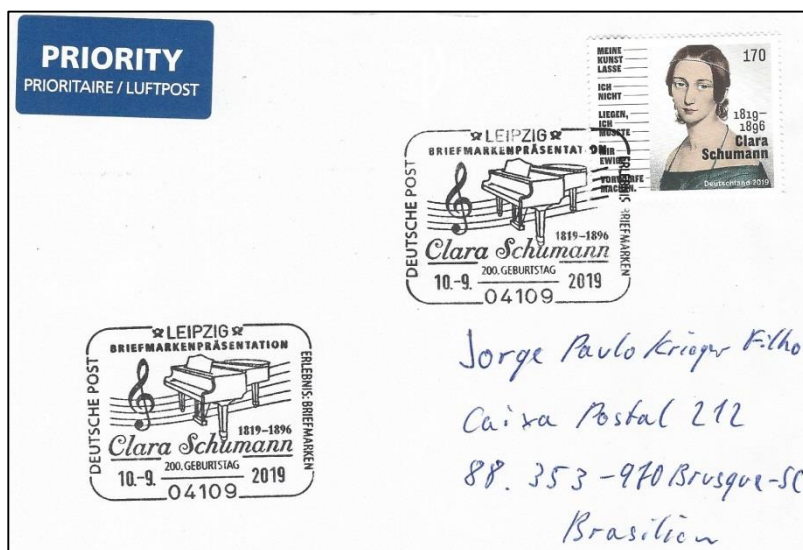 PRIORITY
PRIORITAIRE / LUFTPOST
MEINE
KUNST
LASSE
ICH
NICHT
LIEGEN,
ICH
MÜSSTE
MIR
EWIG
VORWÜRFE
MACHEN.
170
1819–
1896
Clara
Schumann
Deutschland 2019
LEIPZIG
BRIEFMARKENPRÄSENTATION
DEUTSCHE POST
ERLEBNIS: BRIEFMARKEN
1819–1896
Clara Schumann
200. GEBURTSTAG
10.-9. 2019
04109
LEIPZIG
BRIEFMARKENPRÄSENTATION
DEUTSCHE POST
ERLEBNIS: BRIEFMARKEN
1819–1896
Clara Schumann
200. GEBURTSTAG
10.-9. 2019
04109
Jorge Paulo Krieger Filho
Caixa Postal 212
88. 353 - 970 Brusque-SC
Brasilien